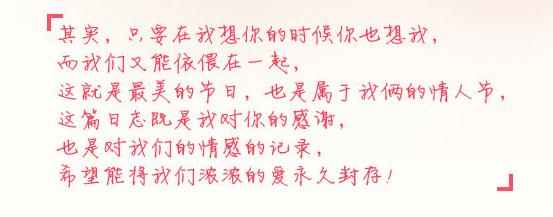 其实，只要在我想你的时候你也想我，
而我们又能依偎在一起，
这就是最美的节日，也是属于我俩的情人节，
这篇日志既是我对你的感谢，
也是对我们的情感的记录，
希望能将我们浓浓的爱永久封存！